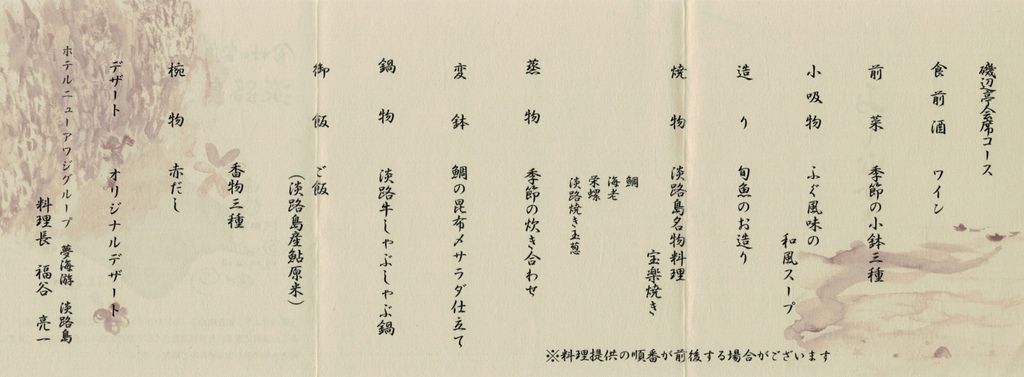 磯辺亭会席コース
食前酒 ワイン
前菜 季節の小鉢三種
小吸物 ふぐ風味の
和風スープ
造り 旬魚のお造り
焼物 淡路島名物料理
宝楽焼き
鯛
海老
栄螺
淡路焼き玉葱
蒸物 季節の炊き合わせ
変鉢 鯛の昆布〆サラダ仕立て
鍋物 淡路牛しゃぶしゃぶ鍋
御飯 ご飯
(淡路島産鮎原米)
香物三種
椀物 赤だし
デザート オリジナルデザート
ホテルニューアワジグループ 夢海游 淡路島
料理長 福谷 亮一
※料理提供の順番が前後する場合がございます